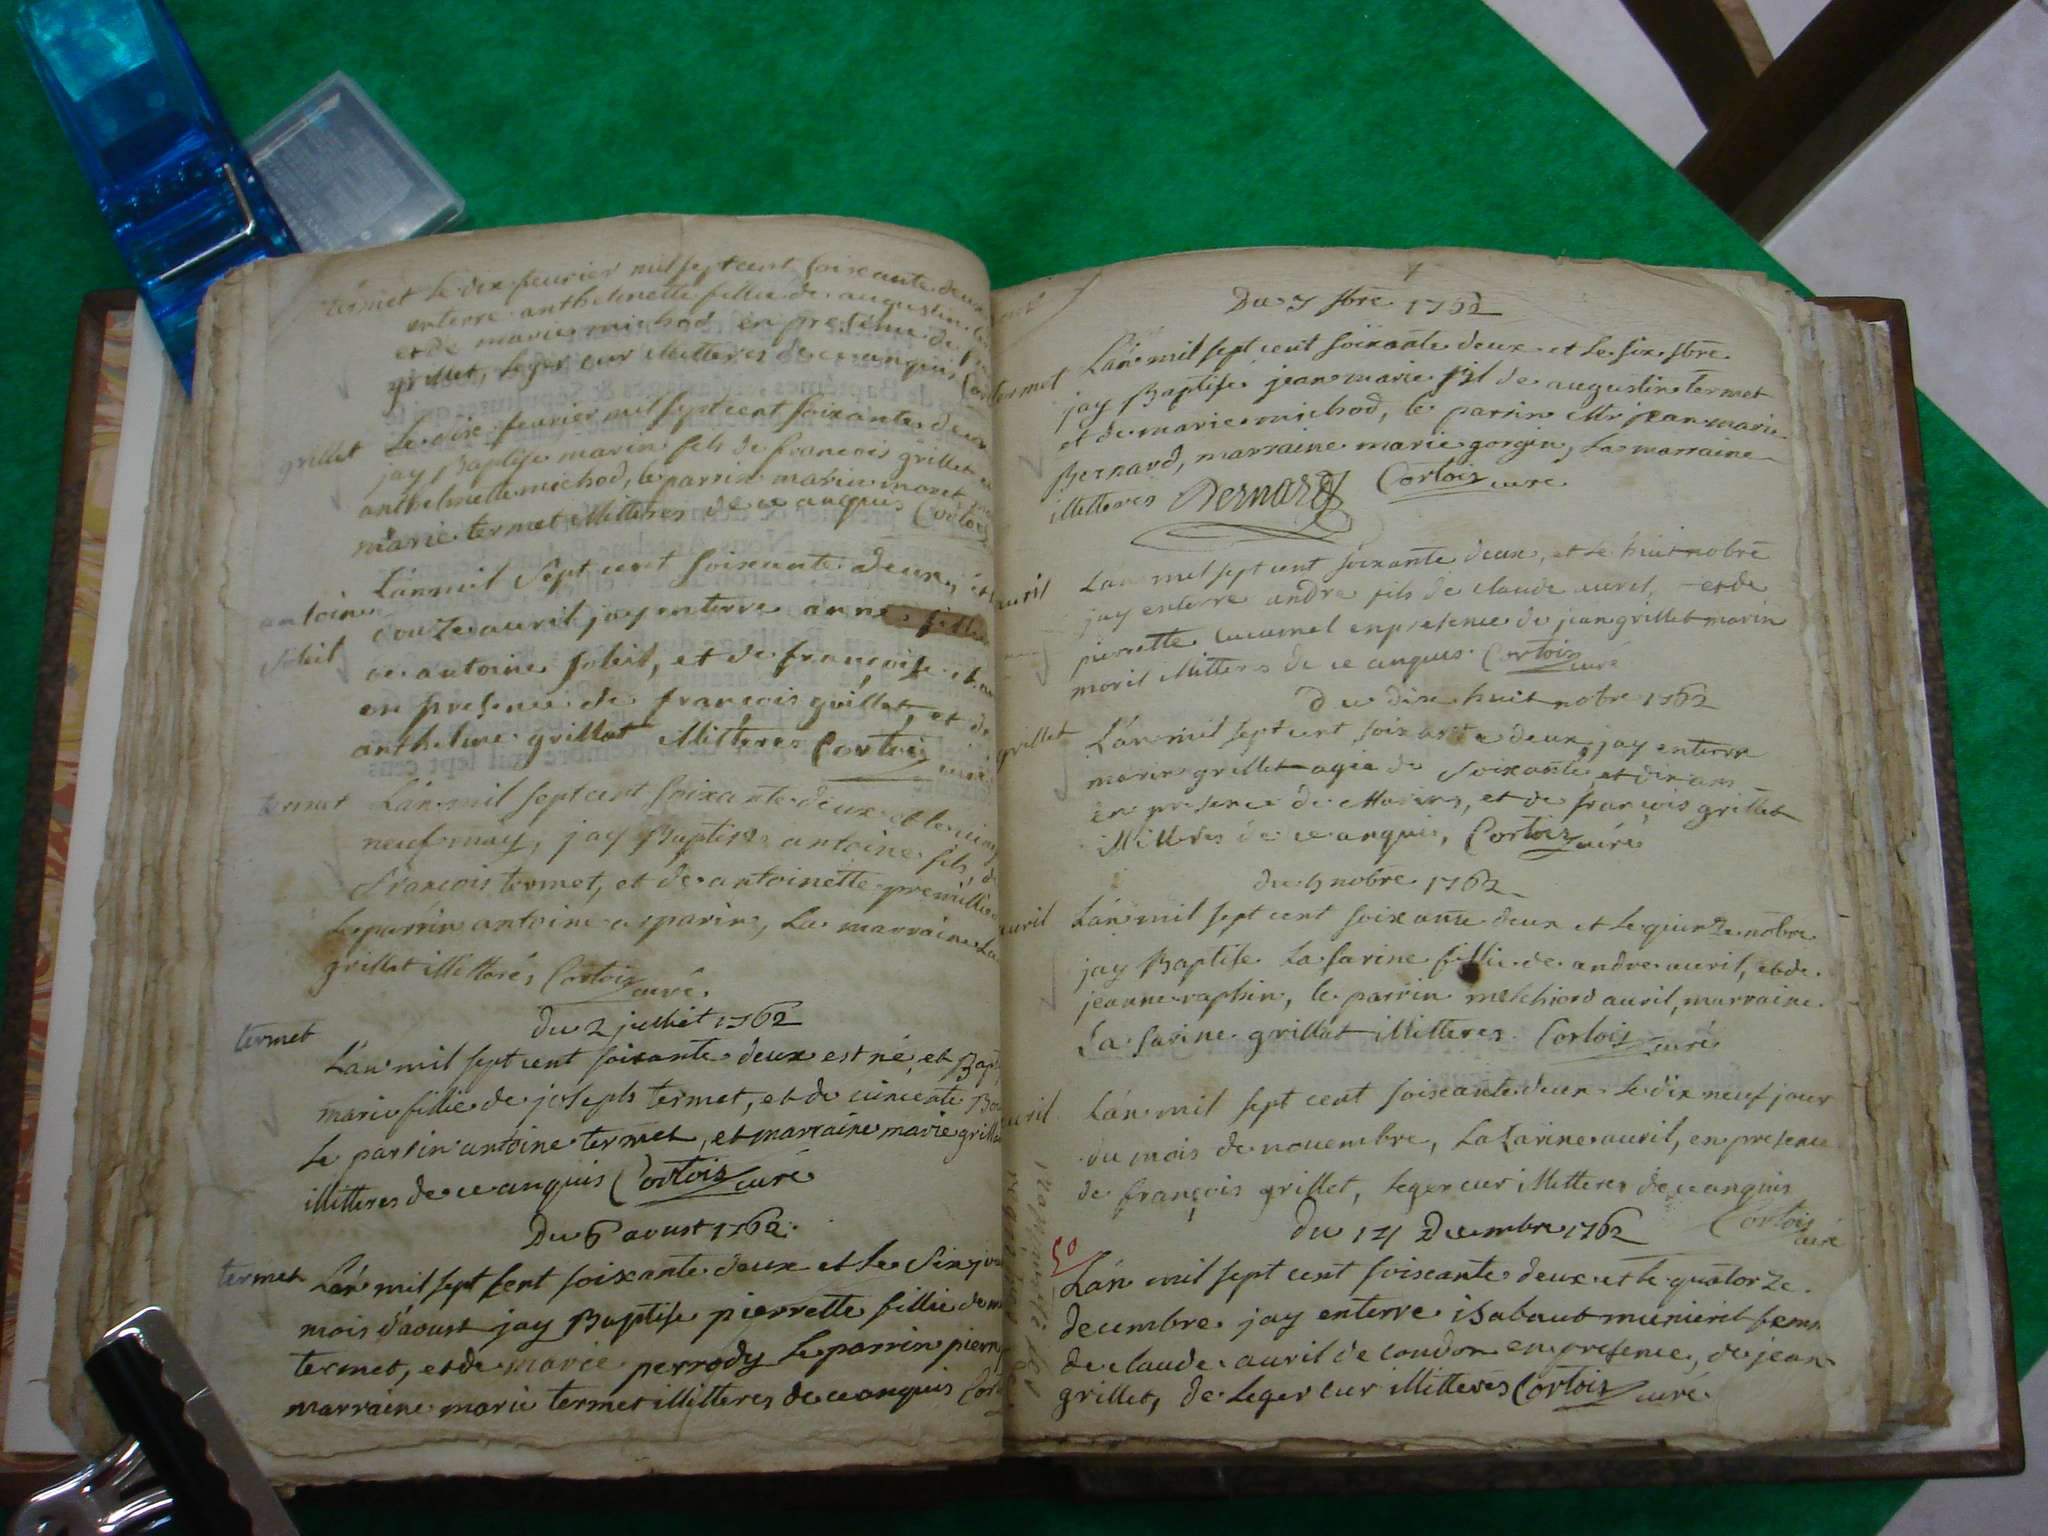 termet Le dix feurier mil sept cent soixante deux
enterre anthelmette fillie de augustin
et de marie michod en presence de
grillet, leger cur illitteres de ce anquis
grillet Le dix feurier mil sept cent soixante deux
jay Baptise marin fils de francois grillet
anthelmette michod, le parrin marin moret
marie termet illitteres de ce anquis Cortois
L'an mil sept cent soixante deux, et
antoine douze auril jay enterre anne fillie
soleil de antoine soleil, et de françoise
en presence de françois grillet, et de
anthelme grillat illitteres Cortois curé
termet L'an mil sept cent soixante deux et le
neuf may, jay Baptise antoine fils, de
françois termet, et de antoinette
Le parrin antoine asparin, La marraine La
grillet illitteres Cortois curé.
du 2 julliet 1762
termet
L'an mil sept cent soixante deux est né, et Bapt
marie fillie de joseph termet, et de
Le parrin antoine termet, et marraine marie grillet
illitteres de ce anquis Cortois curé
Du 6 aoust 1762.
termet L'an mil sept cent soixante deux et le six jour
mois d'aoust jay Baptise pierrette fillie de
termet, et de marie perrody Le parrin pierre
marraine marie termet illitteres de ce anquis
Du 7 1762
L'an mil sept cent soixante deux et le six
termet jay Baptise jean marie fil de augustin termet
et de marie michod, le parrin Mr jean marie
Bernard, marraine marie gorgin, La marraine
illitteres Bernard Cortois curé
auril L'an mil sept cent soixante deux, et le huit nobre
jay enterre andre fils de claude auril, et de
pierrette cucumel en presence de jean grillet marin
illitteres de ce anquis. Cortois curé
du dix huit nobre 1762
grillet L'an mil sept cent soixante deux, jay enterre
marin grillet agée de soixante et dix ans
en presence de Marin, et de françois grillet
illitteres de ce anquis, Cortois curé
du nobre 1762
auril L'an mil sept cent soixante deux et le quinze nobre
jay Baptise La sarine fillie de andre auril, et de
jeanne raphin, le parrin melchiord auril, marraine
La sarine grillat illitteres. Cortois curé
auril L'an mil sept cent soixante deux Le dix neuf jour
du mois de nouembre, La Zarine auril, en presence
de françois grillet, leger cur illitteres de ce anquis
Cortois curé
du 14 Decembre 1762
50 L'an mil sept cent soixante deux et le quatorze
decembre jay enterre isabaut femm
de claude auril de condon en presence, de jean
grillet, de Leger cur illitteres Cortois curé